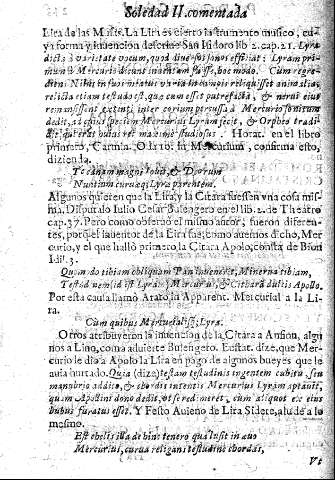 Soledad II. comentada
Lira de las Musas. La Lira es cierto instrumento musico, cu-
ya forma, y invencion descrive San Isidoro lib. 2. cap. 21. Lyra
dicta à varietate vocum, quod diversos sonos efficiat: Lyram pri-
mum à Mercurio dicunt inventam fuisse, hoc modo. Cum regre-
diens Nilus in suos meatus varia in campis reliquisset animalia,
relicta etiam testudo est, quæ cum esset putrefacta, & nervi eius
remansissent extenti inter corium percussa à Mercurio sonitum
dedit, ad cuius speciem Mercurius Lyram fecit, & Orpheo tradi-
dit, qui erat huius rei maximè studiosus. Horat. en el libro
primero, Carmin. Oda 10. in Mercurium, confirma esto,
diziendo.
Te canam magni Iovis, & Deorum
Nuntium curvæq; Lyræ parentem.
Algunos quieren que la Lira, y la Citara fuessen una cosa mis-
ma. Disputalo Iulio Cesar Bulengero en el lib. 2. de Theatro
cap. 37. Pero como observò el mismo autor, fueron diferen-
tes, porque el inventor de la Lira fue, como avemos dicho, Mer-
curio, y el que hallò primero la Citara Apolo, consta de Bion
Idil. 3.
Quam do tibiam obliquam Pan invenerit, Minerva tibiam,
Testudinem id est Lyram Mercurius, & Citharã dulcis Apollo.
Por esta causa llamò Arato in Apparent. Mercurial a la Li-
ra.
Cum quibus Mercurialisq; Lyra.
Otros atribuyeron la invencion de la Citara a Anfion, algu-
nos a Lino, como advierte Bulengero. Eustat. dize, que Mer-
curio le diò a Apolo la Lira en pago de algunos bueyes que le
avia hurtado. Quia (dize) testam testudinis ingentem cubitu, seu
manubrio addito, & chordis intentis Mercurius Lyram aptavit,
quam Apollini dono dedit, ut se redimeret, cum aliquot ex eius
bubus furatus esset. Y Festo Avieno de Lira Sidere, alude a lo
mesmo.
Est chelis illa dehinc tenero qua lusit in ævo
Mercurius, curva religans testudine chordas,
Vt